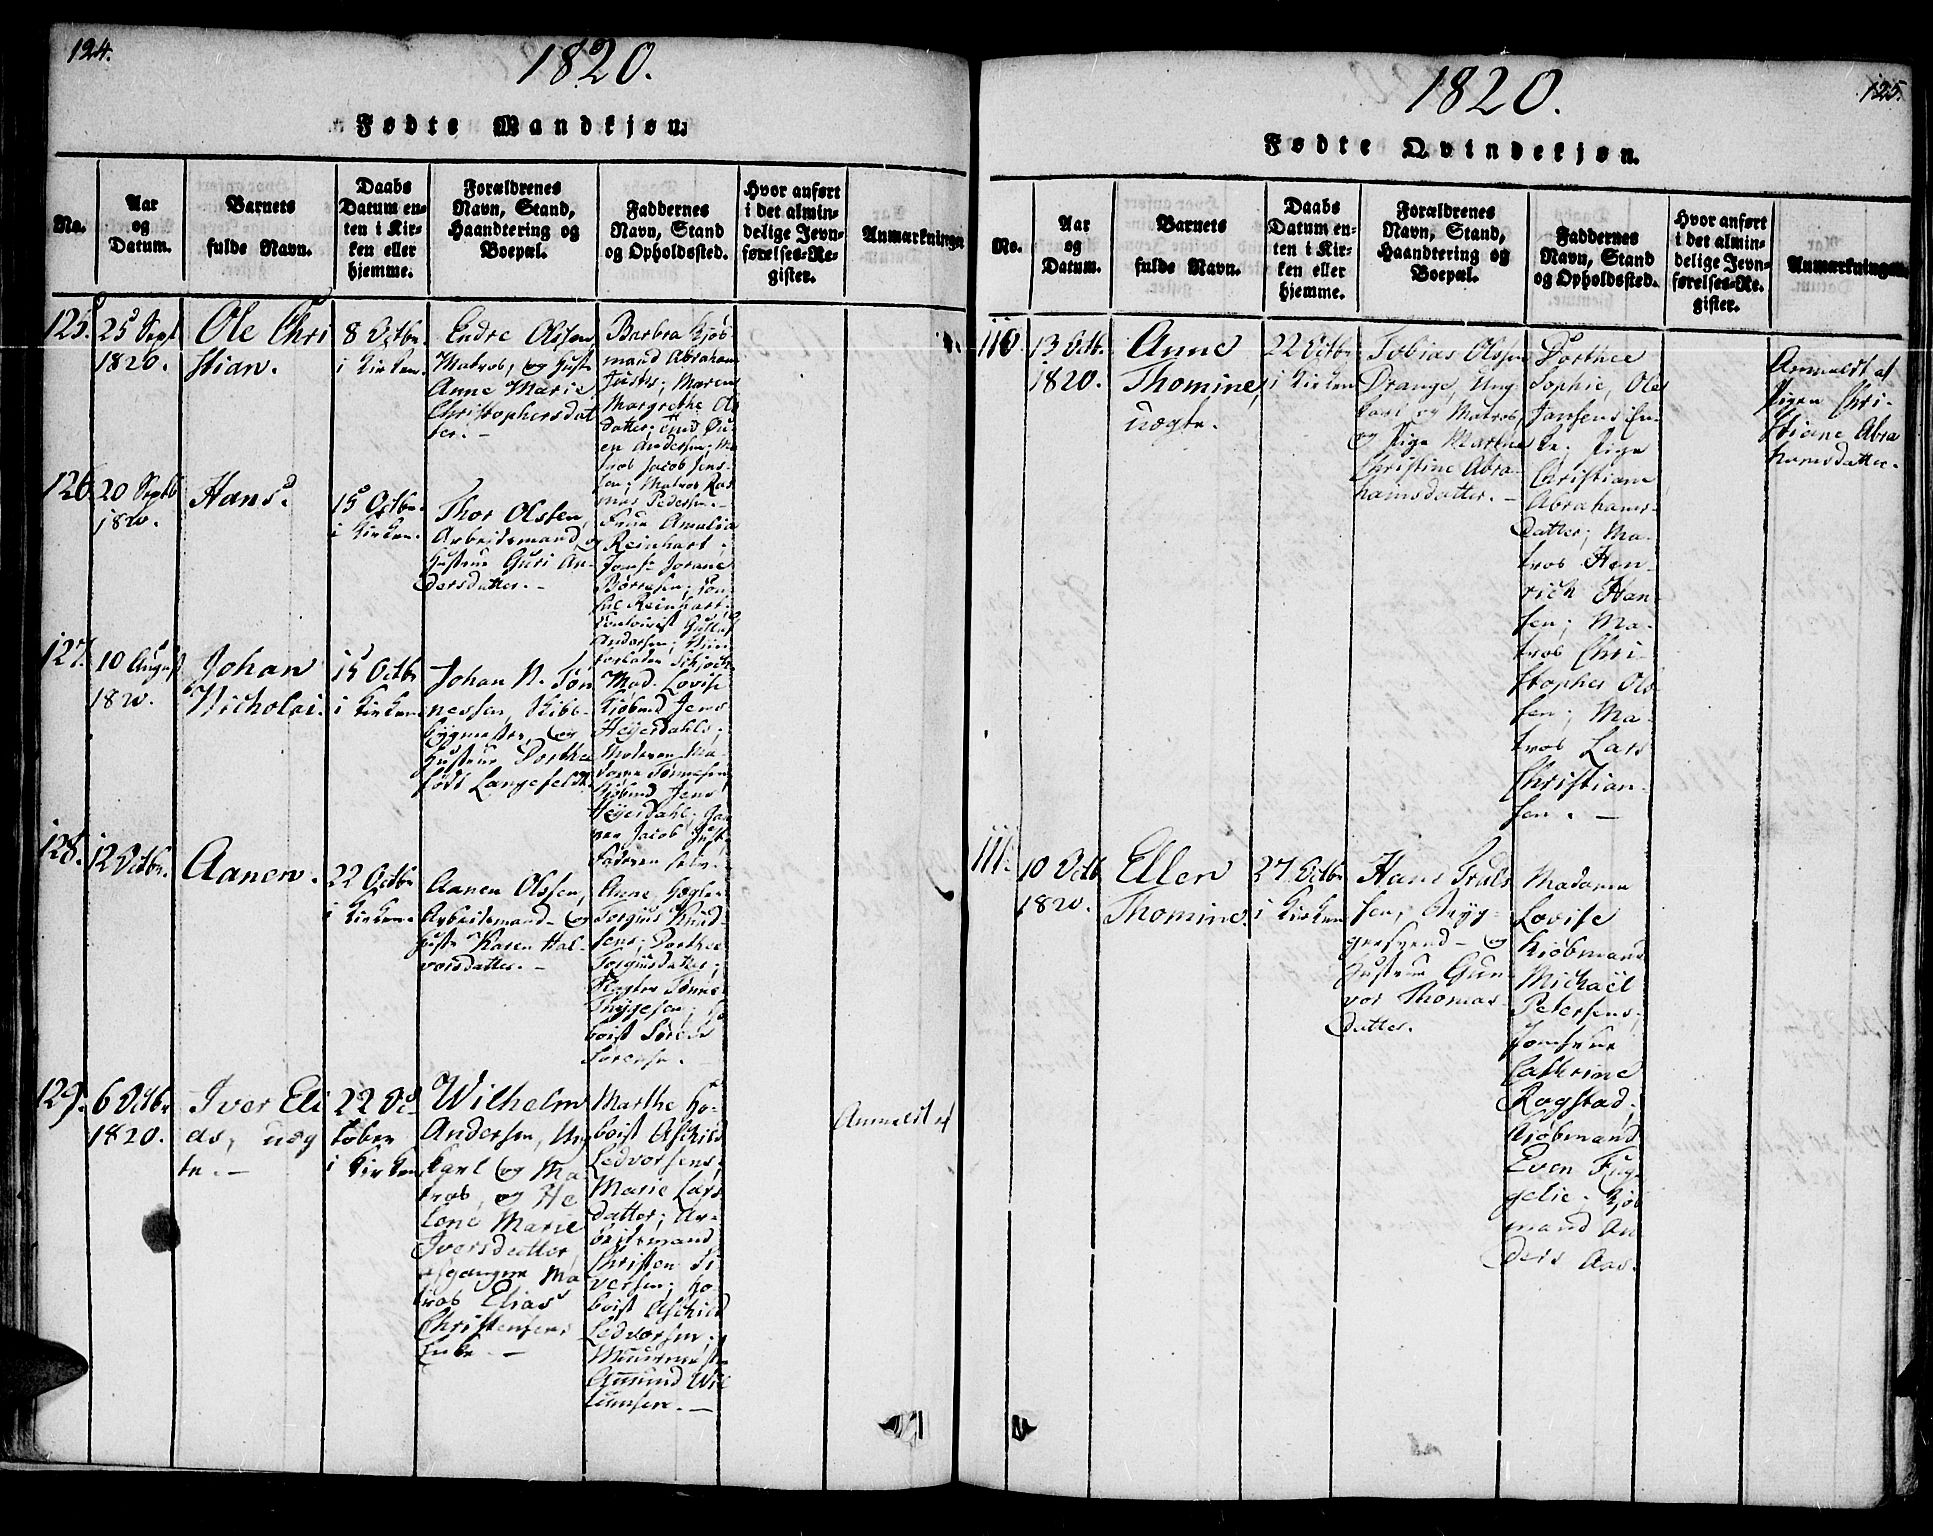 124.
1820.
Fødte Mandkjøn.
No.
Aar
og
Datum.
Barnets
fulde Navn.
Daabs
Datum en-
ten i Kir-
ken eller
hjemme.
Forældrenes
Navn, Stand,
Haandtering og
Boepæl.
Faddernes
Navn, Stand
og Opholdssted.
Hvor anført
i det almin-
delige Jevn-
førelses-Re-
gister.
Anmærkninger.
125.
25 Sept
1820.
Ole Chri
stian.
8 Octbr.
i Kirken.
Endre Olssen,
Matros, og Hustr
Anne Marie
Christophersdat
ter. -
Barbra Kjøb
mand Abraham
Maren
Margrethe Ols
datter;
Andersen; Ma
tros Jacob Jens-
sen; Matros Ras
mus Pedersen. -
126.
20 Septb
1820.
Hans.
15 Octbr.
i Kirken.
Thor Olssen,
Arbeidsmand, og
Hustrue Guri An-
dersdatter. -
Frue Amalia
Reinhart;
Jomfr Jorane
Børresen; Con-
sul Reinhart;
Andersen;
127.
10 August
1820.
Johan
Nicholai.
15 Octbr
i Kirken.
Johan N. Tøn
nessen, Skibb-
bygmester, og
Hustrue Dorthe
født Langefeldt.
Mad. Lovise
Kjøbmd Jens
Heyerdahls;
Moderen Ma-
dame Tønnesen;
Kjøbmd Jens
Heyerdahl;
Jacob
Faderen selv.
128.
12 Octbr.
Aanen.
22 Octbr
i Kirken.
Aanen Olssen,
Arbeidsmand og
Hustr Karen Hal-
vorsdatter. -
Anne
Torgius Knud
sens; Dorthe
Torgiusdatter;
Tønnes
Thygesen; Ho
boist Søren
Sørensen.
129.
6 Octbr
1820.
Iver Eli
as, uæg
te. -
22 Oc
tober
i Kirken
Wilhelm
Andersen, Ung
karl og Ma
tros, og He
lene Marie
Iversdatter,
afgangne Ma
tros Elias
Christensens
Enke. -
Marthe Ho-
boist Aschild
Ledvorsens;
Marie Lars
datter; Ar-
beidsmand
Christen Si
versen; Ho-
boist Aschild
Ledvorsen;
Muurmester
Amund Wil
lumsen. -
Anmeldt af
125.
1820.
Fødte Qvindekjøn.
No.
Aar
og
Datum.
Barnets
fulde Navn.
Daabs
Datum en-
ten i Kir-
ken eller
hjemme.
Forældrenes
Navn, Stand,
Haandtering og
Boepæl.
Faddernes
Navn, Stand
og Opholdssted.
Hvor anført
i det almin-
delige Jevn-
førelses-Re-
gister.
Anmærkninger.
110.
13 Octb.
1820.
Anne
Thomine,
uægte.
22 Octbr
i Kirken
Tobias Olssen
Drange, Ung
karl og Matros,
og Pige Marthe
Christine Abra-
hamsdatter. -
Dorthee
Sophie, Ole
Jansens En-
ke; Pige
Christiane
Abrahams-
datter; Ma-
tros Hen-
rich Han-
sen; Ma-
tros Chri-
stopher Ols-
sen; Ma-
tros Lars
Christian-
sen. -
Anmeldt af
Pigen Chri-
stiane Abra
hamsdatter.
111.
10 Octb
1820.
Ellen
Thomine.
27 Octbr
i Kirken
Hans Trols
sen, Bryg-
gersvend - og
Hustrue Gun
vor Thomas-
datter.
Madame
Lovise
Kjøbmand
Michael
Petersens;
Jomfrue
Cathrine
Rogstad;
Kjøbmand
Even Fug
gelie; Kjøb
mand An
ders Aas.